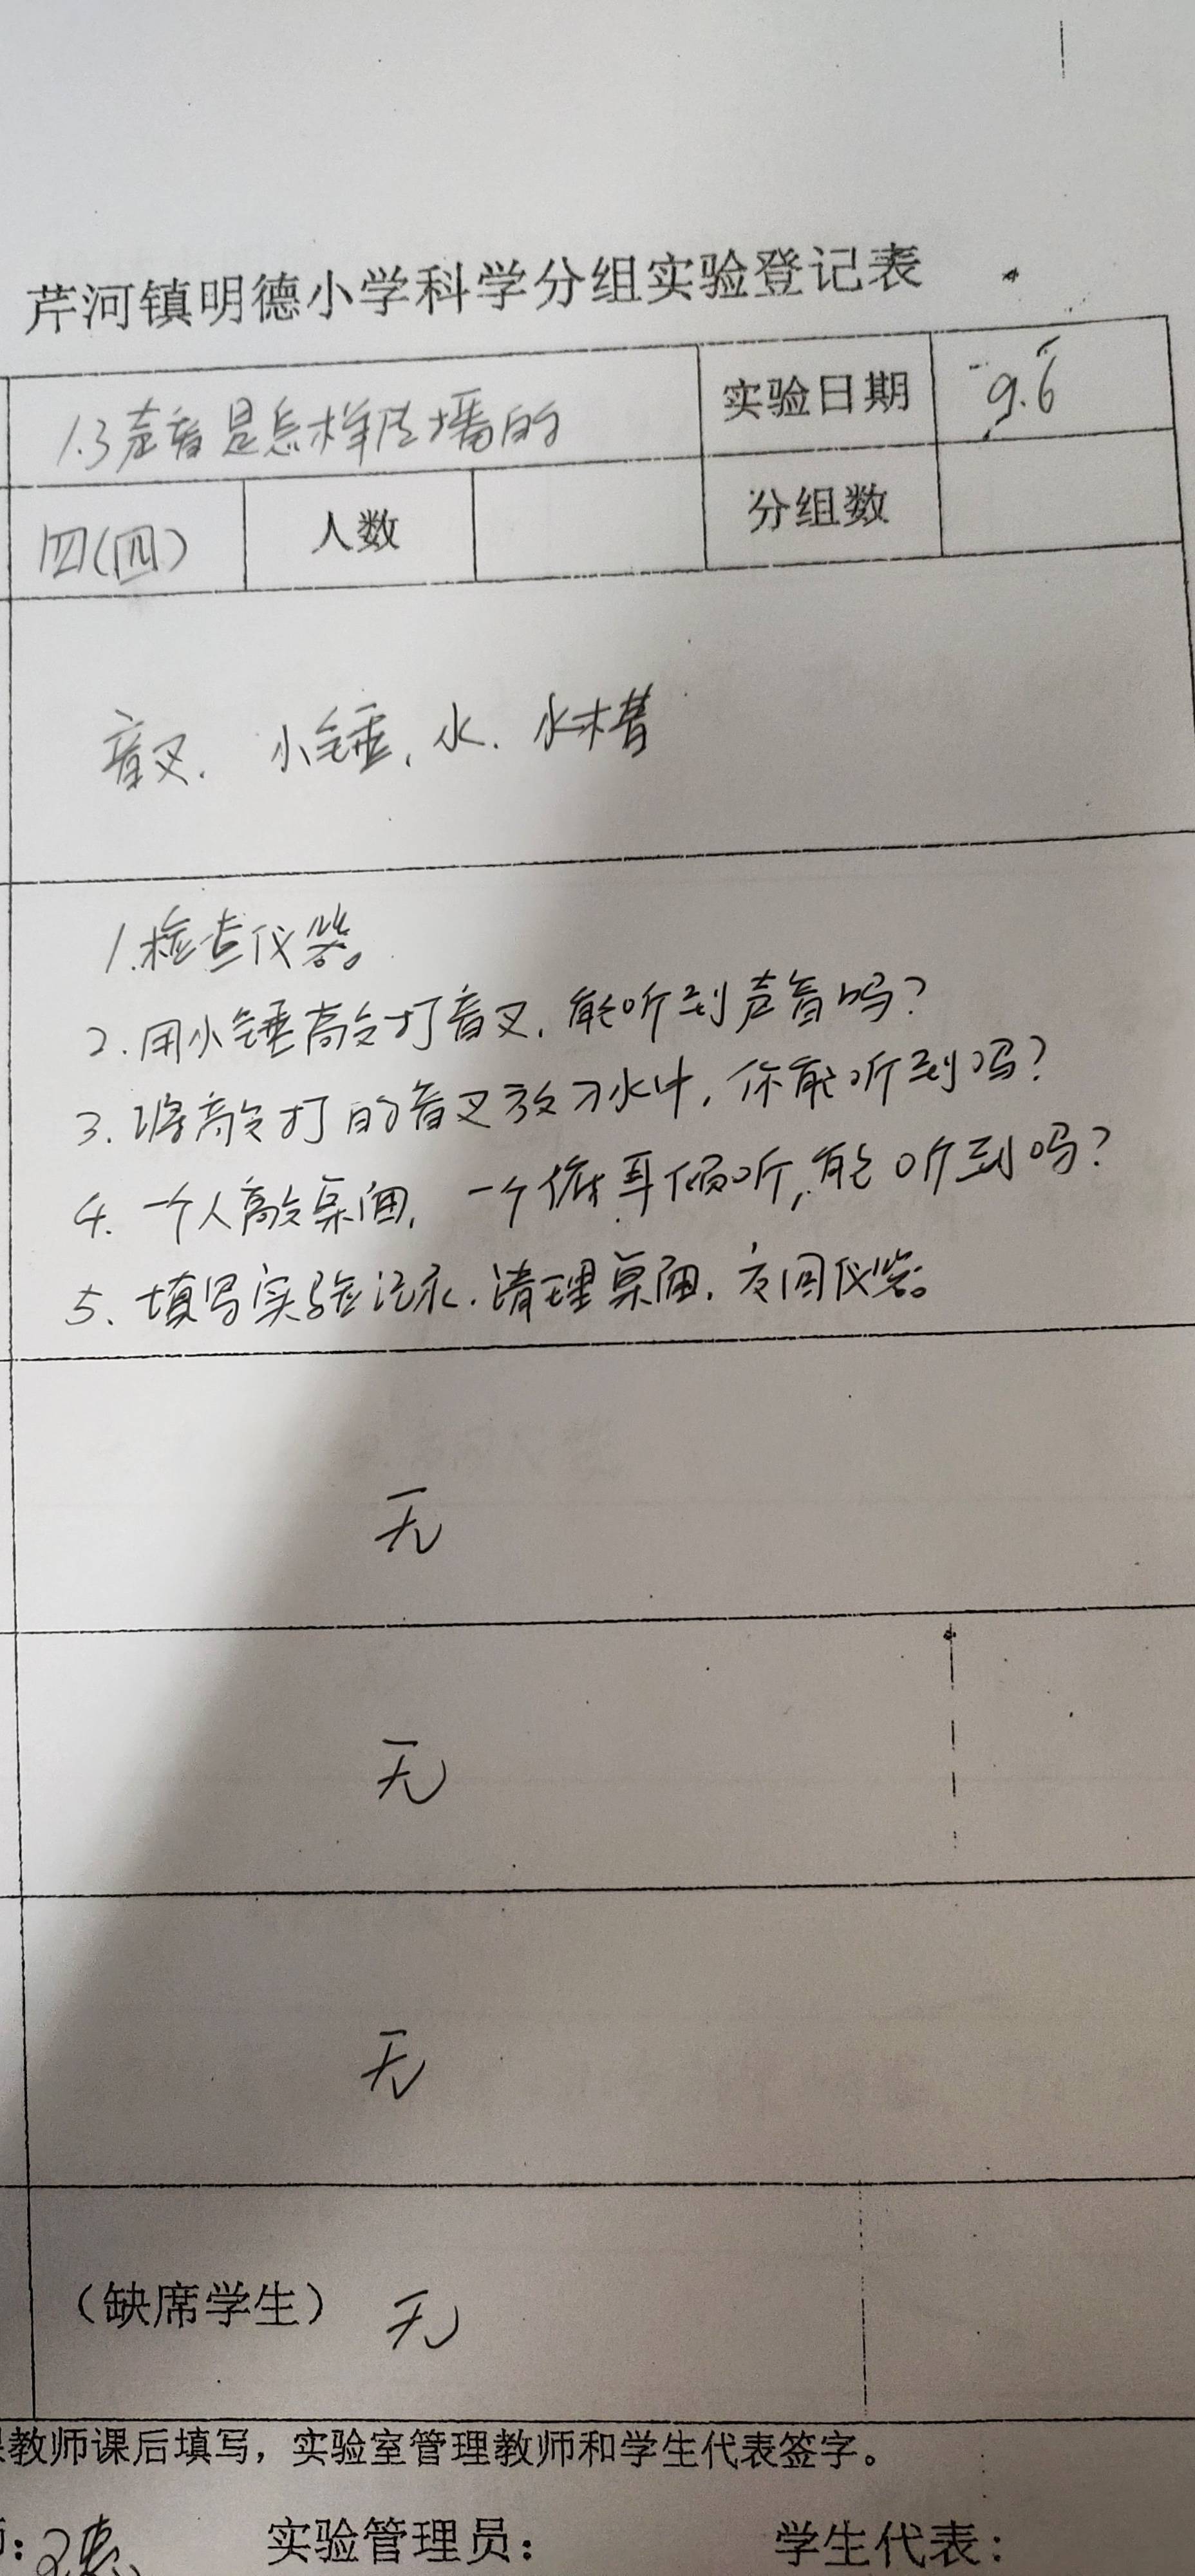 芹河镇明德小学科学分组实验登记表
1.3声音是怎样传播的 实验日期 9.6
四(四) 人数 分组数
音叉、小锤、水、水槽
1.检查仪器。
2.用小锤敲打音叉,能听到声音吗?
3.将敲打的音叉放入水中,你能听到吗?
4.一个人敲桌面,一个俯耳倾听,能听到吗?
5、填写实验记录.清理桌面.交回仪器。
无
无
无
(缺席学生) 无
教师课后填写,实验室管理教师和学生代表签字。
实验管理员: 学生代表: